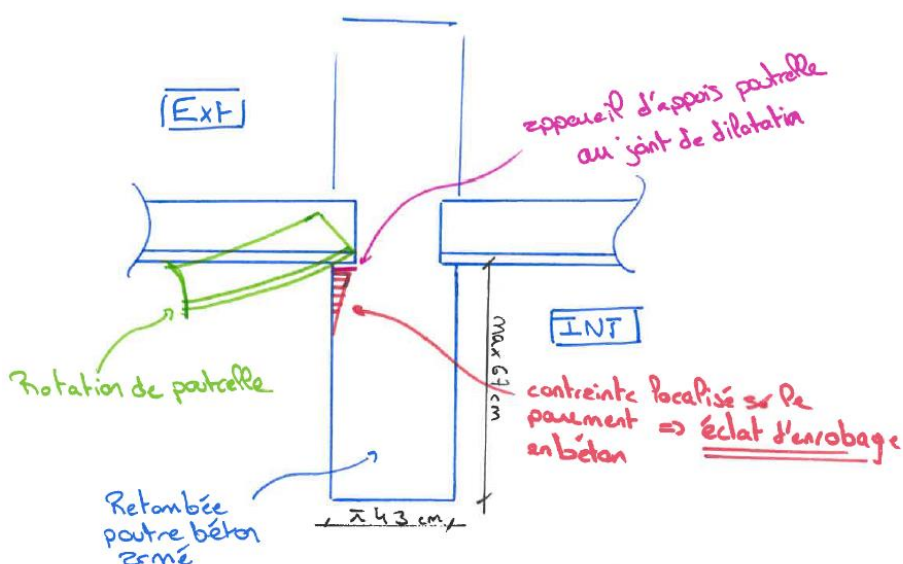 Ext
appareil d'appuis poutrelle
au joint de dilatation
INT
Rotation de poutrelle
max 67 cm
contrainte localisé sur le
parement => éclat d'enrobage
en béton
Retombée
poutre béton
armé
± 43 cm